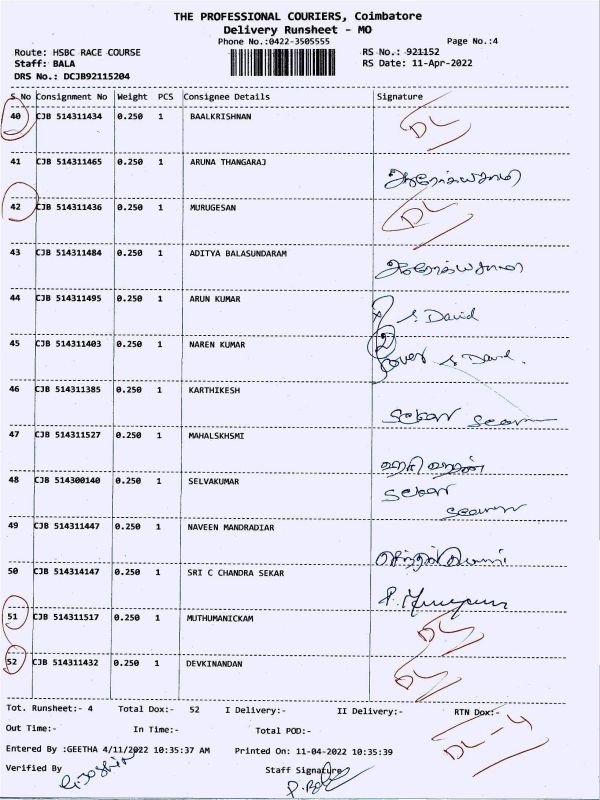 THE PROFESSIONAL COURIERS, Coimbatore
Delivery Runsheet - MO
Phone No.:0422-3505555 Page No.:4
Route: HSBC RACE COURSE RS No.: 921152
Staff: BALA RS Date: 11-Apr-2022
DRS No.: DCJB92115204
S No Consignment No Weight PCS Consignee Details Signature
40 CJB 514311434 0.250 1 BAALKRISHNAN DL
41 CJB 514311465 0.250 1 ARUNA THANGARAJ
42 CJB 514311436 0.250 1 MURUGESAN DL
43 CJB 514311484 0.250 1 ADITYA BALASUNDARAM
44 CJB 514311495 0.250 1 ARUN KUMAR S David
45 CJB 514311403 0.250 1 NAREN KUMAR 2 cover S David.
46 CJB 514311385 0.250 1 KARTHIKESH
47 CJB 514311527 0.250 1 MAHALSKHSMI
48 CJB 514300140 0.250 1 SELVAKUMAR
49 CJB 514311447 0.250 1 NAVEEN MANDRADIAR
50 CJB 514314147 0.250 1 SRI C CHANDRA SEKAR
51 CJB 514311517 0.250 1 MUTHUMANICKAM DL
52 CJB 514311432 0.250 1 DEVKINANDAN DL
Tot. Runsheet:- 4 Total Dox:- 52 I Delivery:- II Delivery:- RTN Dox:-
Out Time:- In Time:- Total POD:- DL - 4
Entered By :GEETHA 4/11/2022 10:35:37 AM Printed On: 11-04-2022 10:35:39
Verified By Staff Signature